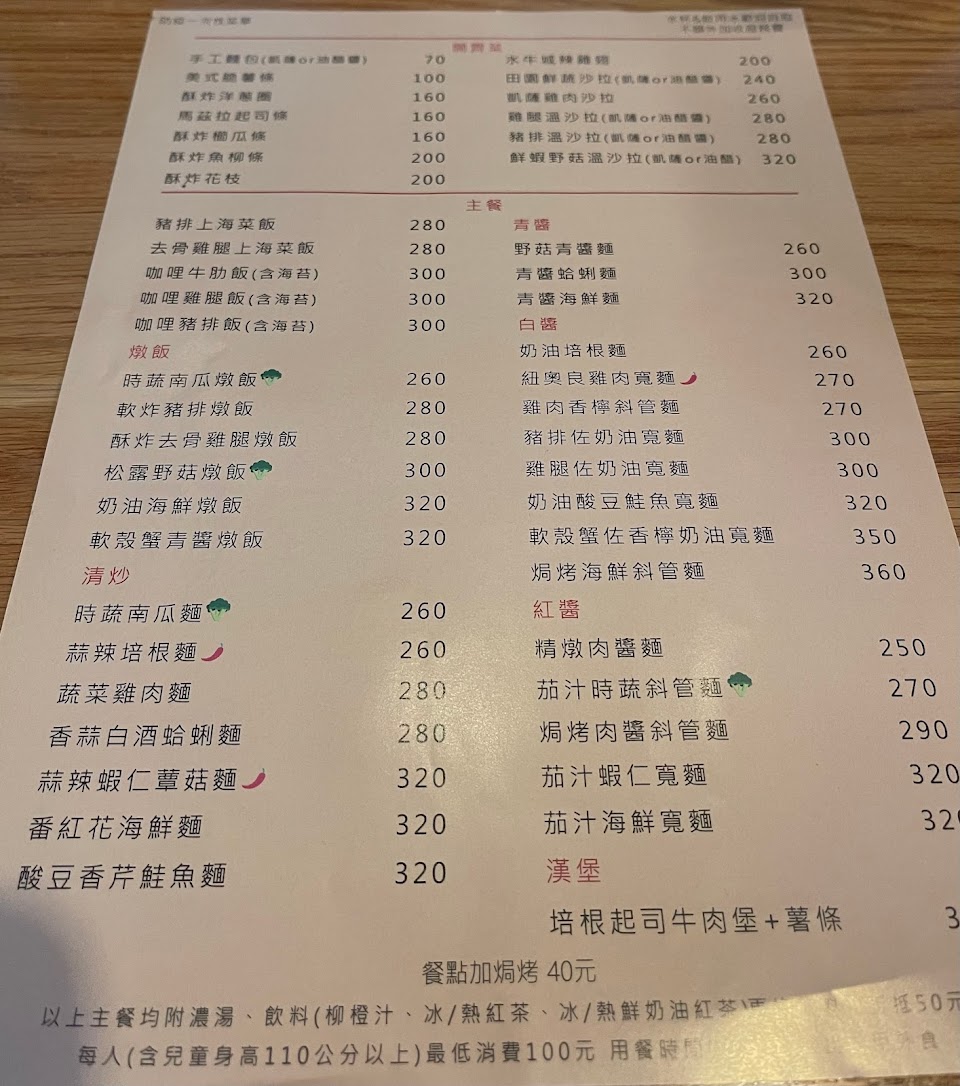 防疫一次性菜單
水杯&飲用水歡迎自取
不額外加收服務費
開胃菜
手工麵包(凱薩or油醋醬) 70
美式脆薯條 100
酥炸洋蔥圈 160
馬茲拉起司條 160
酥炸櫛瓜條 160
酥炸魚柳條 200
酥炸花枝 200
水牛城辣雞翅 200
田園鮮蔬沙拉(凱薩or油醋醬) 240
凱薩雞肉沙拉 260
雞腿溫沙拉(凱薩or油醋醬) 280
豬排溫沙拉(凱薩or油醋醬) 280
鮮蝦野菇溫沙拉(凱薩or油醋) 320
主餐
豬排上海菜飯 280
去骨雞腿上海菜飯 280
咖哩牛肋飯(含海苔) 300
咖哩雞腿飯(含海苔) 300
咖哩豬排飯(含海苔) 300
燉飯
時蔬南瓜燉飯 260
軟炸豬排燉飯 280
酥炸去骨雞腿燉飯 280
松露野菇燉飯 300
奶油海鮮燉飯 320
軟殼蟹青醬燉飯 320
清炒
時蔬南瓜麵 260
蒜辣培根麵 260
蔬菜雞肉麵 280
香蒜白酒蛤蜊麵 280
蒜辣蝦仁蕈菇麵 320
番紅花海鮮麵 320
酸豆香芹鮭魚麵 320
青醬
野菇青醬麵 260
青醬蛤蜊麵 300
青醬海鮮麵 320
白醬
奶油培根麵 260
紐奧良雞肉寬麵 270
雞肉香檸斜管麵 270
豬排佐奶油寬麵 300
雞腿佐奶油寬麵 300
奶油酸豆鮭魚寬麵 320
軟殼蟹佐香檸奶油寬麵 350
焗烤海鮮斜管麵 360
紅醬
精燉肉醬麵 250
茄汁時蔬斜管麵 270
焗烤肉醬斜管麵 290
茄汁蝦仁寬麵 320
茄汁海鮮寬麵 320
漢堡
培根起司牛肉堡+薯條 3
餐點加焗烤 40元
以上主餐均附濃湯、飲料(柳橙汁、冰/熱紅茶、冰/熱鮮奶油紅茶) 抵50元
每人(含兒童身高110公分以上)最低消費100元 用餐時間 食